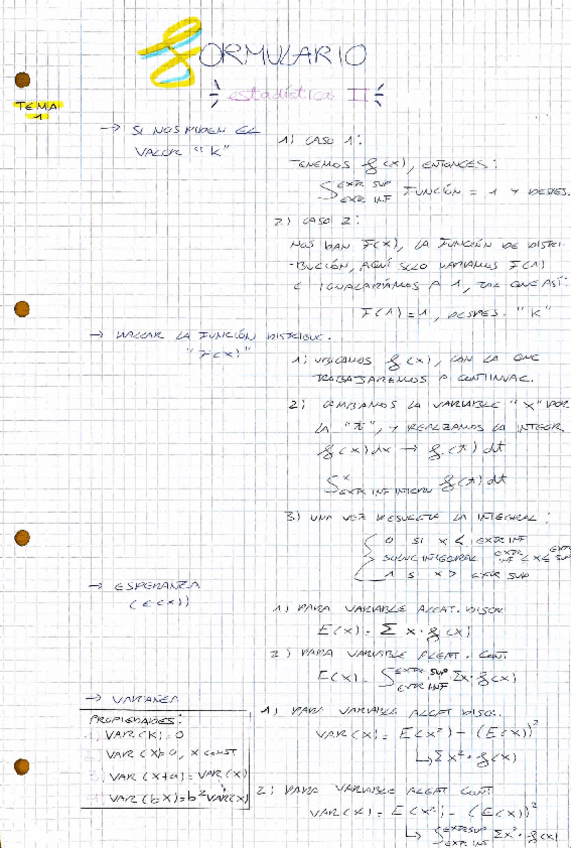 FORMULARIO
estadística II
TEMA 1
→ SI NOS PIDEN EL
VALOR "K"
1) CASO 1:
TENEMOS f(x), ENTONCES:
∫ EXTR SUP EXTR INF FUNCIÓN = 1 Y DESPEJ.
2) CASO 2:
NOS DAN F(x), LA FUNCIÓN DE DISTRI-
-BUCIÓN, AQUÍ SOLO F(1)
E IGUALARÍAMOS A 1, TAL QUE ASÍ:
F(1) = 1, DESPEJ. "K"
→ HALLAR LA FUNCIÓN DISTRIBUC.
"F(x)"
1) f(x), CON LA QUE
TRABAJAREMOS A CONTINUAC.
2) CAMBIAMOS LA VARIABLE "X" POR
LA "t", Y REALIZAMOS LA INTEGR.
f(x) dx → f(t) dt
∫ x EXTR INF f(t) dt
3) UNA VEZ RESUELTA LA INTEGRAL:
0 SI X < EXTR INF
SOLUC INTEGRAL EXTR INF < X ≤ EXTR SUP
1 SI X > EXTR SUP
→ ESPERANZA
(E(x))
1) PARA VARIABLE ALEAT. DISCR.
E(x) = Σ x · f(x)
2) PARA VARIABLE ALEAT. CONT.
E(x) = ∫ EXTR SUP EXTR INF Σx · f(x)
→ VARIANZA
PROPIEDADES:
1) VAR(K) = 0
2) VAR(X) = 0, X CONST
3) VAR(X+a) = VAR(X)
4) VAR(bX) = b² VAR(X)
1) PARA VARIABLE ALEAT DISC.
VAR(X) = E(x²) - (E(x))²
↳ Σx² · f(x)
2) PARA VARIABLE ALEAT CONT
VAR(X) = E(x²) - (E(x))²
↳ ∫ EXTR SUP EXTR INF Σx² · f(x)